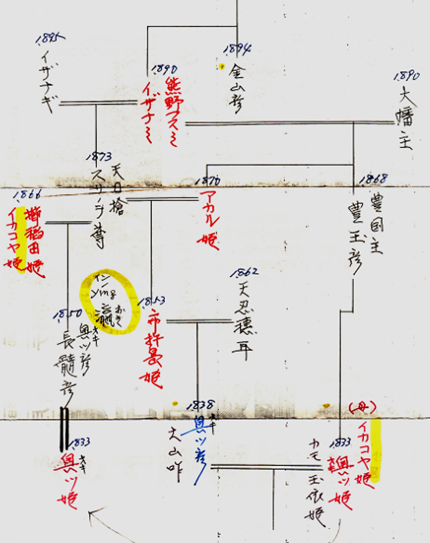 1895
イザナギ
1890
熊野フスミ
イザナミ
1894
金山彦
1890
大幡主
1873
天日槍
スサノヲ尊
1870
アカル姫
1868
豊国主
豊玉彦
1866
櫛稲田姫
イカコヤ姫
イン
ying
瀛
おき
1862
天忍穂耳
1853
市杵島姫
1850
オキ
奥ツ彦
長髄彦
1838
オキ
奥ツ彦
大山咋
(母)
イカコヤ姫
1833
奥ツ姫
カモ玉依姫
1833
オキ
奥ツ姫